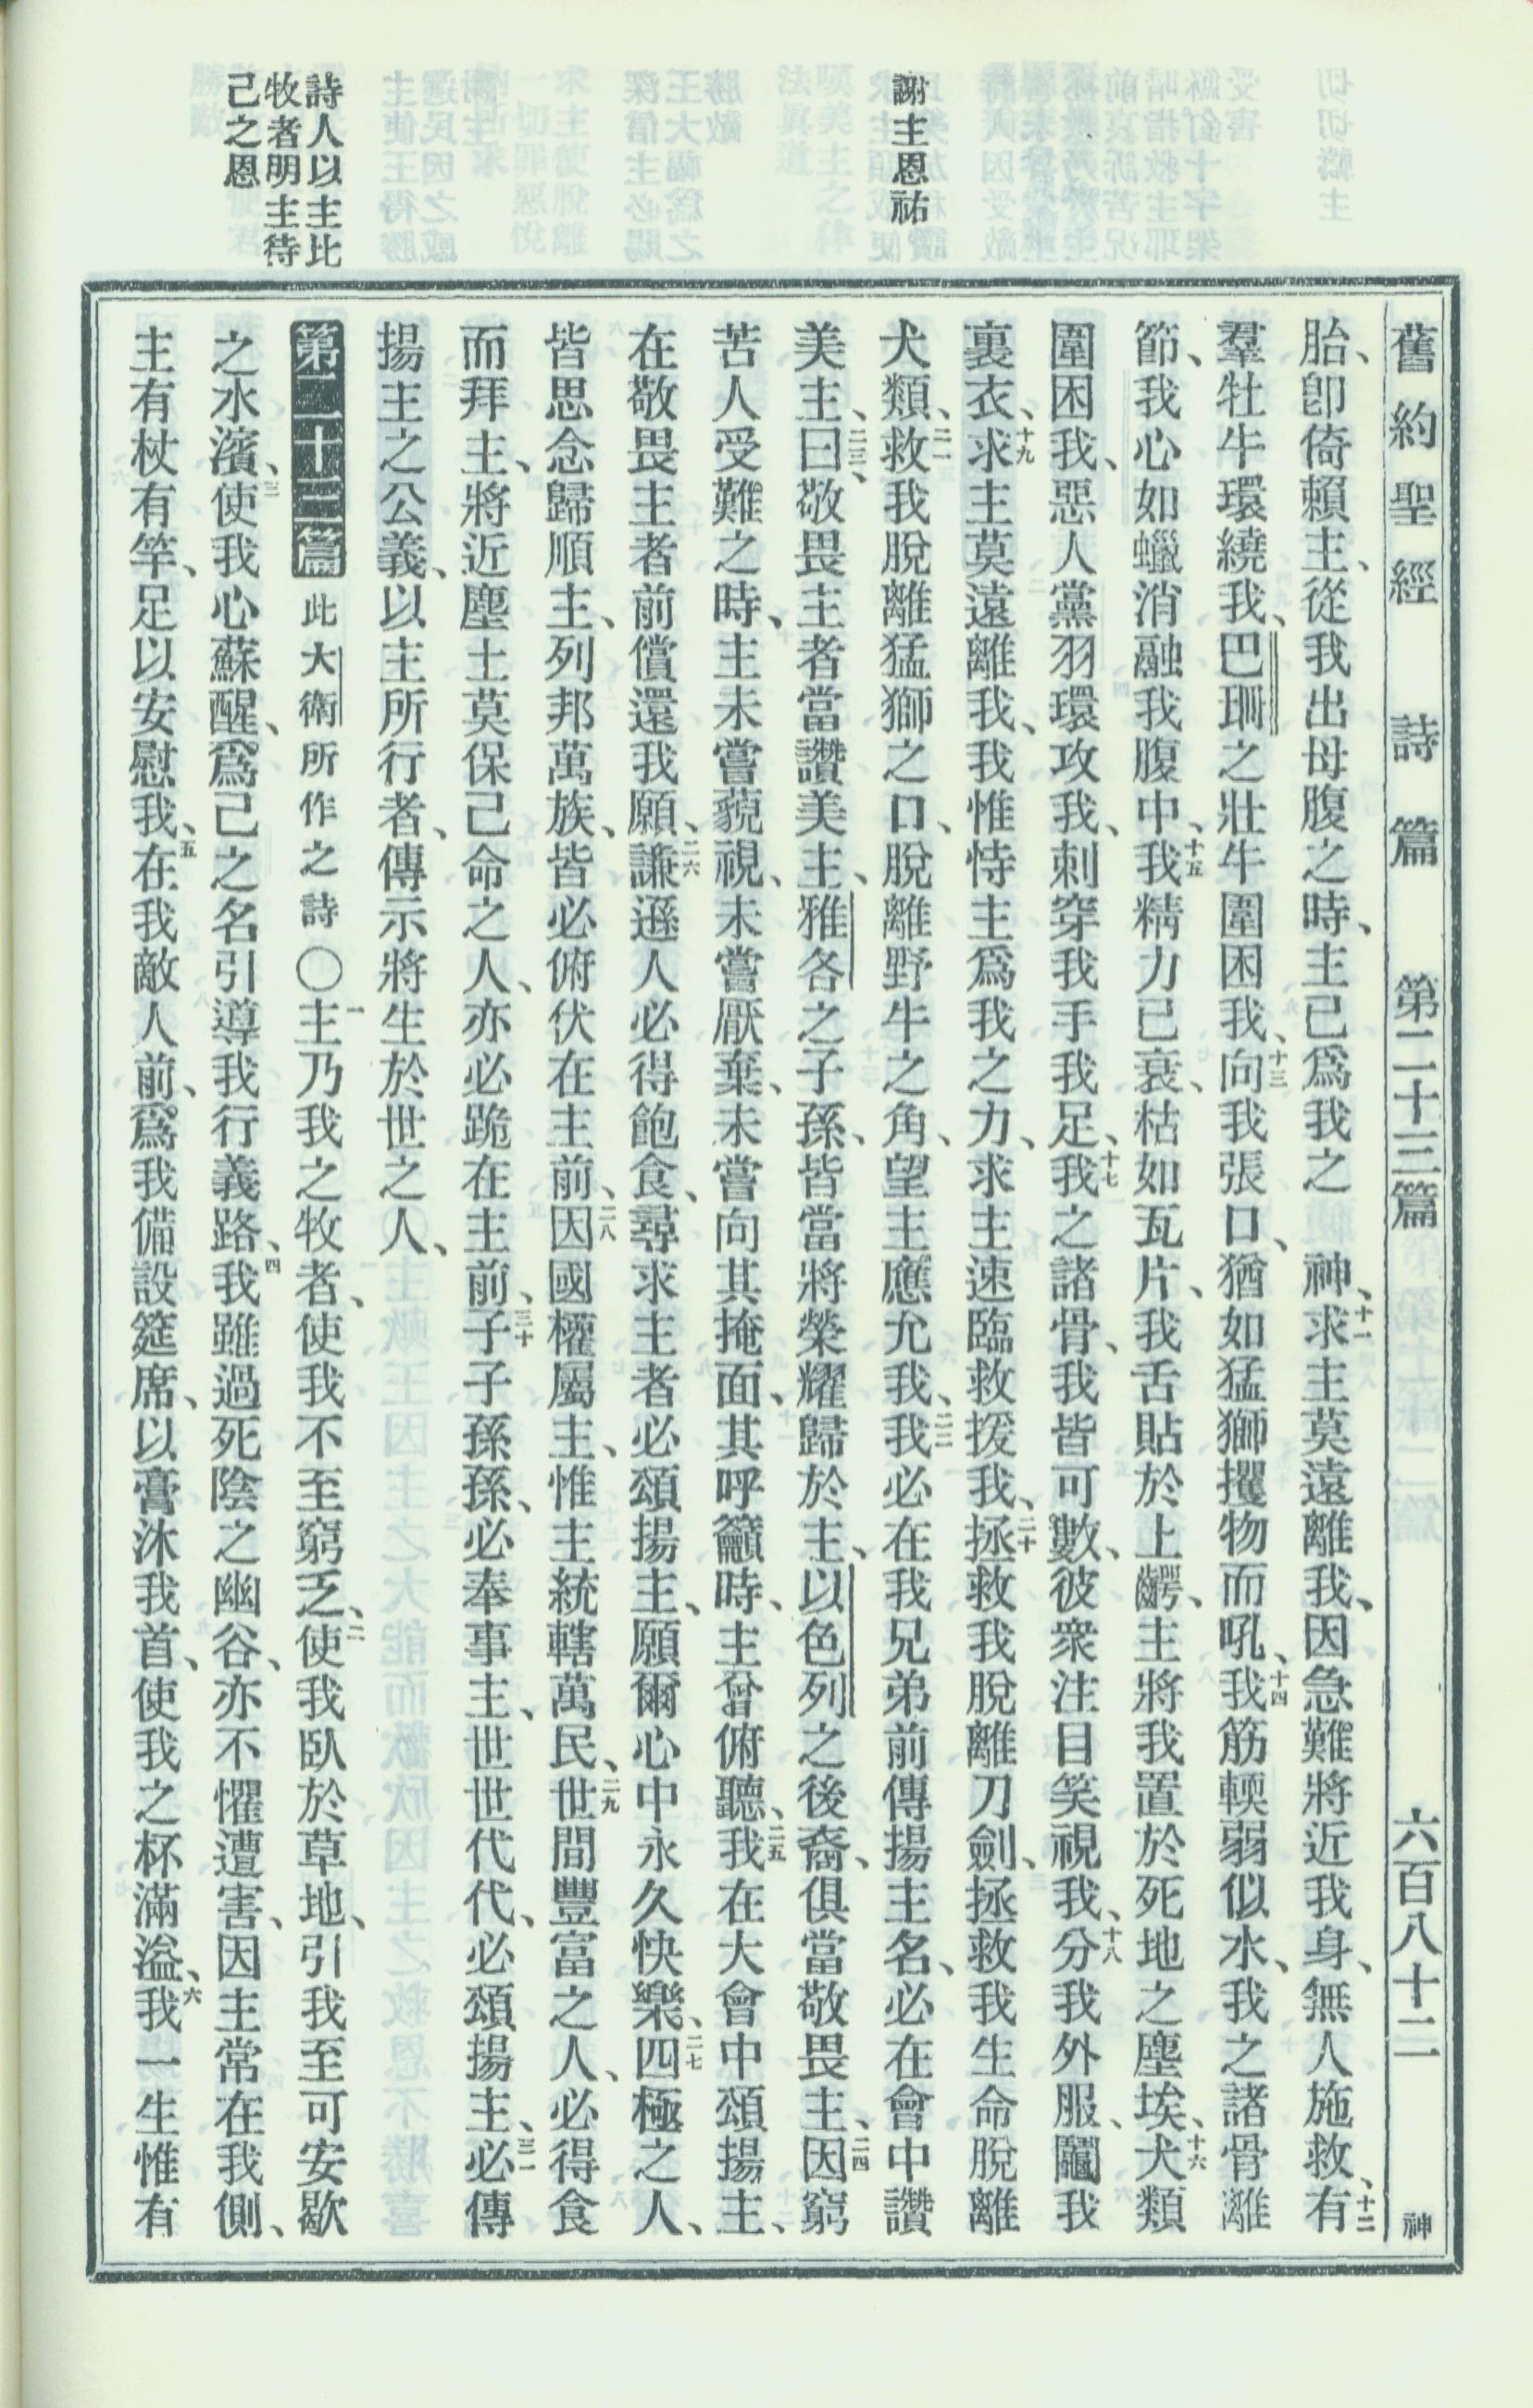 舊約聖經 詩篇 第二十三篇 六百八十二 神
胎、卽倚賴主、從我出母腹之時、主已爲我之 神、十一求主莫遠離我、因急難將近我身、無人施救、十二有
羣牡牛環繞我、巴珊之壯牛圍困我、十三向我張口、猶如猛獅攫物而吼、十四我筋輭弱似水、我之諸骨離
節、我心如蠟消融我腹中、十五我精力已衰、枯如瓦片、我舌貼於上齶、主將我置於死地之塵埃、十六犬類
圍困我、惡人黨羽環攻我、刺穿我手我足、十七我之諸骨、我皆可數、彼衆注目笑視我、十八分我外服、鬮我
裏衣、十九求主莫遠離我、我惟恃主爲我之力、求主速臨救援我、二十拯救我脫離刀劍、拯救我生命脫離
犬類、二一救我脫離猛獅之口、脫離野牛之角、望主應允我、二二我必在我兄弟前傳揚主名、必在會中讚
美主、二三曰、敬畏主者當讚美主、雅各之子孫、皆當將榮耀歸於主、以色列之後裔、俱當敬畏主、二四因窮
苦人受難之時、主未嘗藐視、未嘗厭棄、未嘗向其掩面、其呼籲時、主曾俯聽、二五我在大會中頌揚主、
在敬畏主者前償還我願、二六謙遜人必得飽食、尋求主者必頌揚主、願爾心中永久快樂、二七四極之人、
皆思念歸順主、列邦萬族、皆必俯伏在主前、二八因國權屬主、惟主統轄萬民、二九世間豐富之人、必得食
而拜主、將近塵土莫保己命之人、亦必跪在主前、三十子子孫孫、必奉事主、世世代代、必頌揚主、三一必傳
揚主之公義、以主所行者、傳示將生於世之人、
第二十三篇 此大衛所作之詩〇一主乃我之牧者、使我不至窮乏、二使我臥於草地、引我至可安歇
之水濱、三使我心蘇醒、爲己之名引導我行義路、四我雖過死陰之幽谷、亦不懼遭害、因主常在我側、
主有杖有竿、足以安慰我、五在我敵人前、爲我備設筵席、以膏沐我首、使我之杯滿溢、六我一生惟有
謝主恩祐
詩人以主比
牧者明主待
己之恩